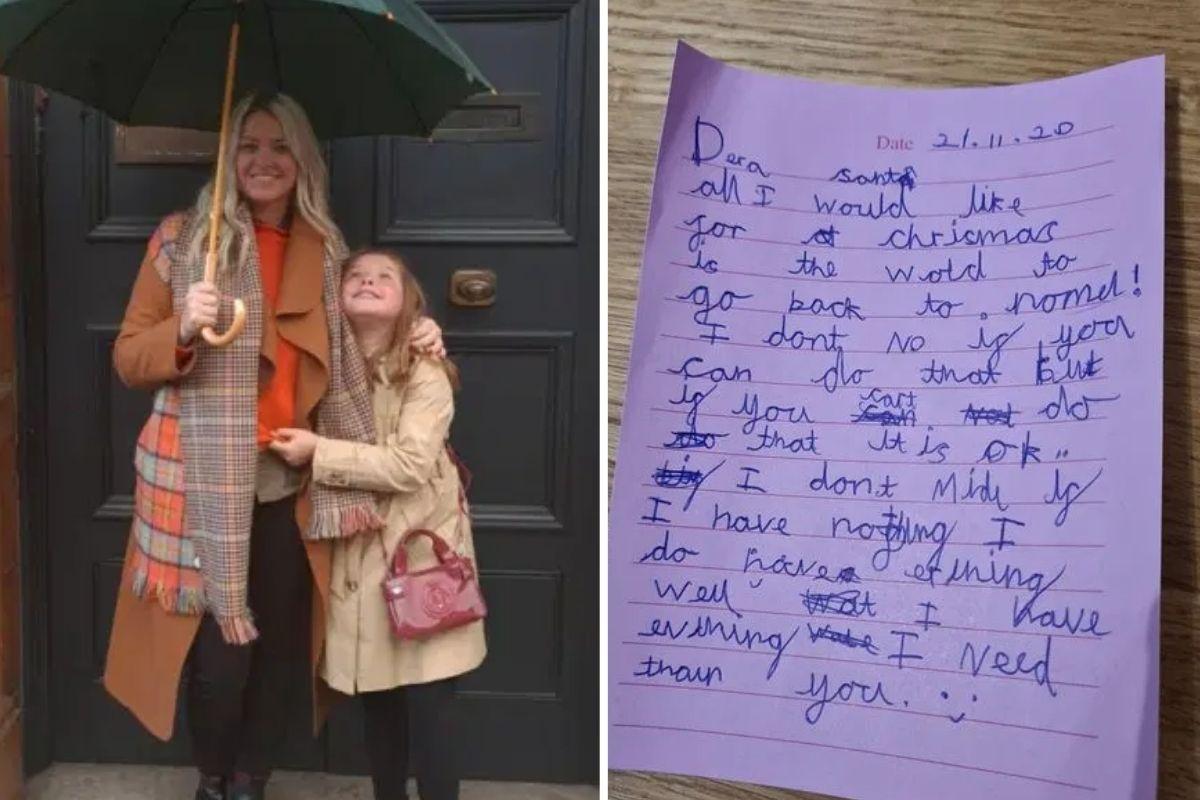 Date 21.11.20
Dera santa
all I would like
for chrismas
is the wold to
go back to nomel!
I dont no if you
can do that but
if you cart do
that it is ok..
I dont Mide if
I have nothing I
do have erthing
well I have
evthing I Need
than you. :)